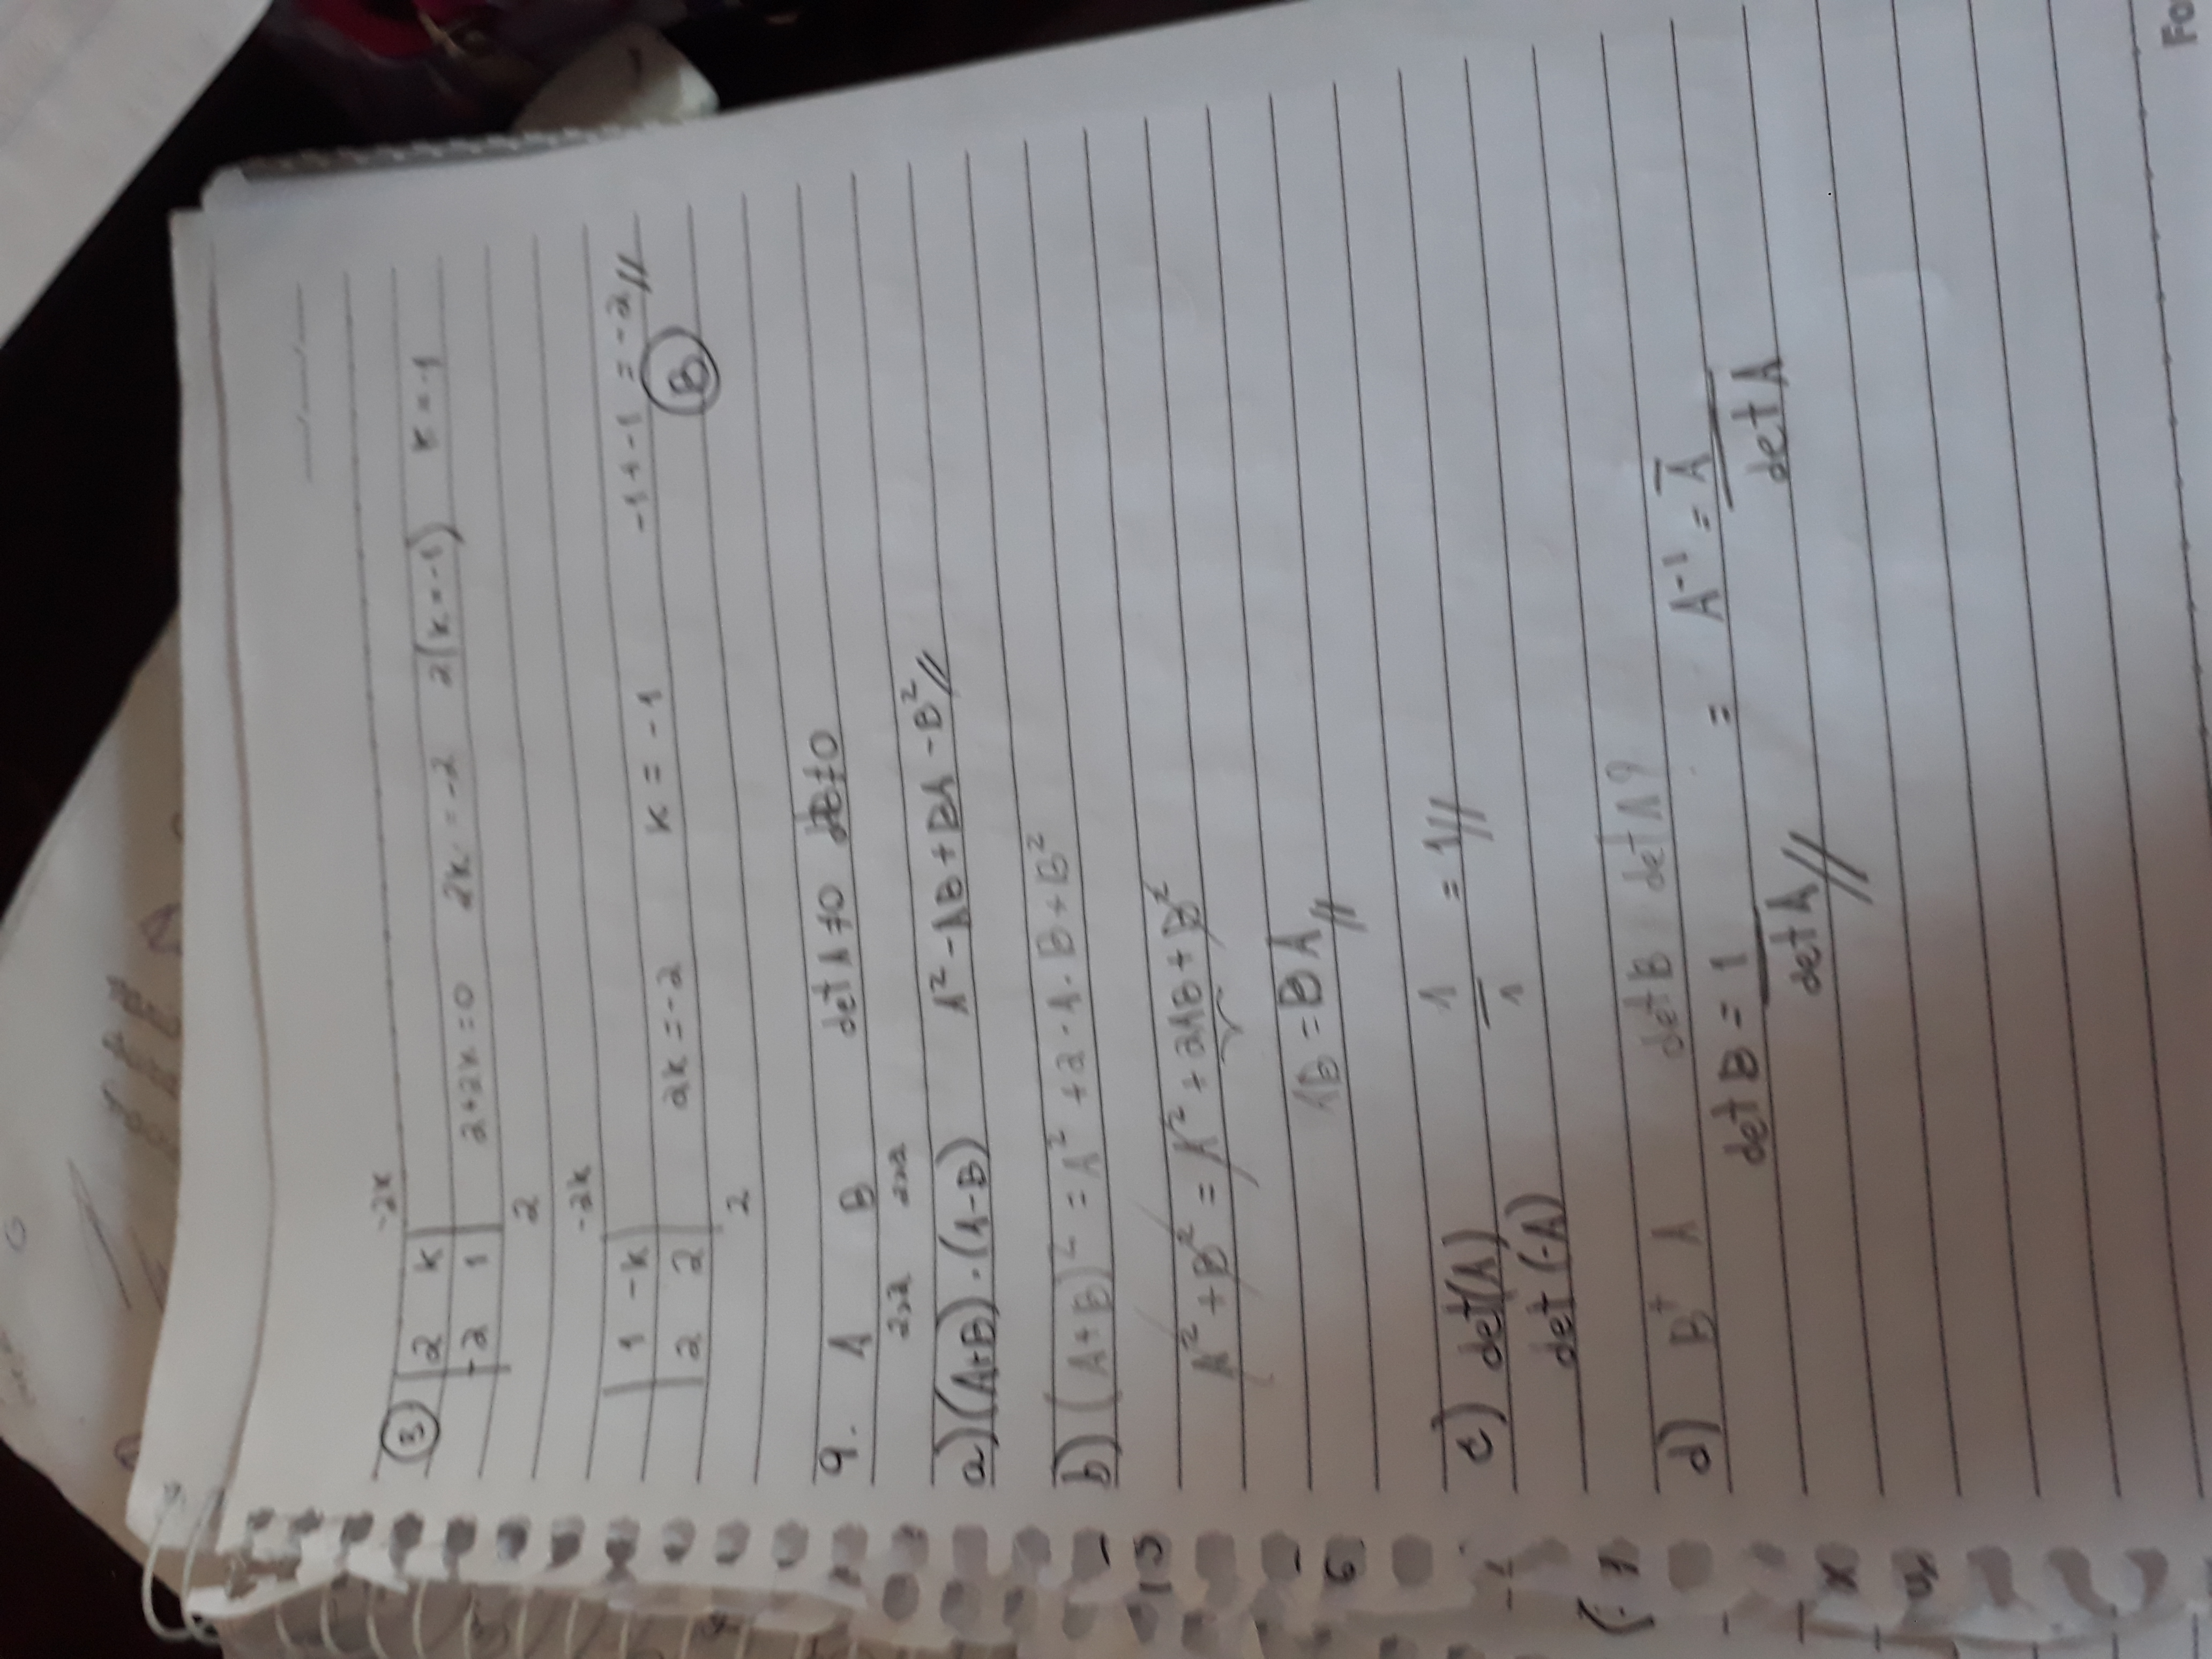 3 | 2 k | -2k
| -2 1 | 2+2k=0 2k = -2 2(k=-1) k = -1
2
-2k
| 1 -k |
| 2 2 | 2k = -2 k = -1 -1+-1 = -2//
2 B
9. A B det A ≠ 0 det B ≠ 0
2x2 2x2
a) (A+B) · (A-B) A² - AB + BA - B² //
b) (A+B)² = A² + 2·A·B + B²
A² + B² = A² + 2AB + B²
AB = BA //
c) det(A) 1 = 1//
det(-A) 1
d) Bᵗ A det B det A?
det B = 1 = A⁻¹ = A̅
det A // det A